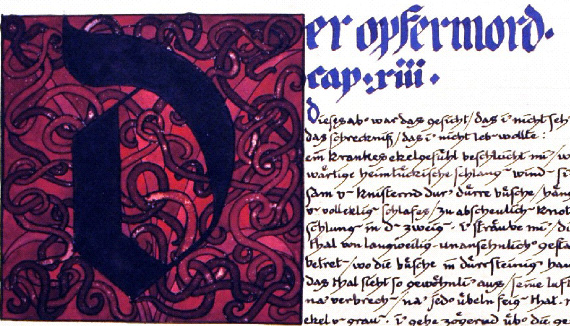 Der opfermord.
cap. xiii.
dieses ab' war das gesicht/ das i' nicht seh
das schreckniß/ das i' nicht leb' wollte:
ein krankes ekelgefühl beschleicht mi'/ w
wärtige heimtückische schlang' wind' si
sam v' knisternd dur' dürre büsche/ hän
v' vollekligs schlafes/ zu abscheulich' knot
schlung' in d' zweig'. i' sträube mi'/ di
thal von langweilig unansehnlich' gesta
betret'/ wo die büsche in dürrsteinig' han
das thal sieht so gewöhnli' aus/ seine luft
na' verbrech'/ na' jed' übeln feig' that.
ekel v' grau'. i' gehe zögernd üb' die ge